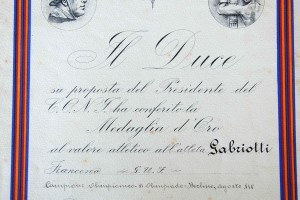 Il Duce
su proposta del Presidente del
C.O.N.I. ha conferito la
Medaglia d'Oro
al valore atletico all'atleta Gabriotti
Francesco G.U.F.
Campione Olimpionico Olimpiade Berlino, Agosto XIV